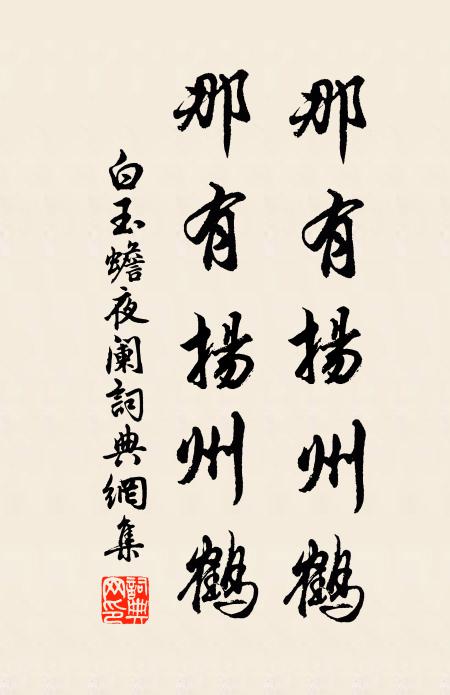 那有揚州鶴
那有揚州鶴
白玉蟾夜阑詞典網集
詞典网印